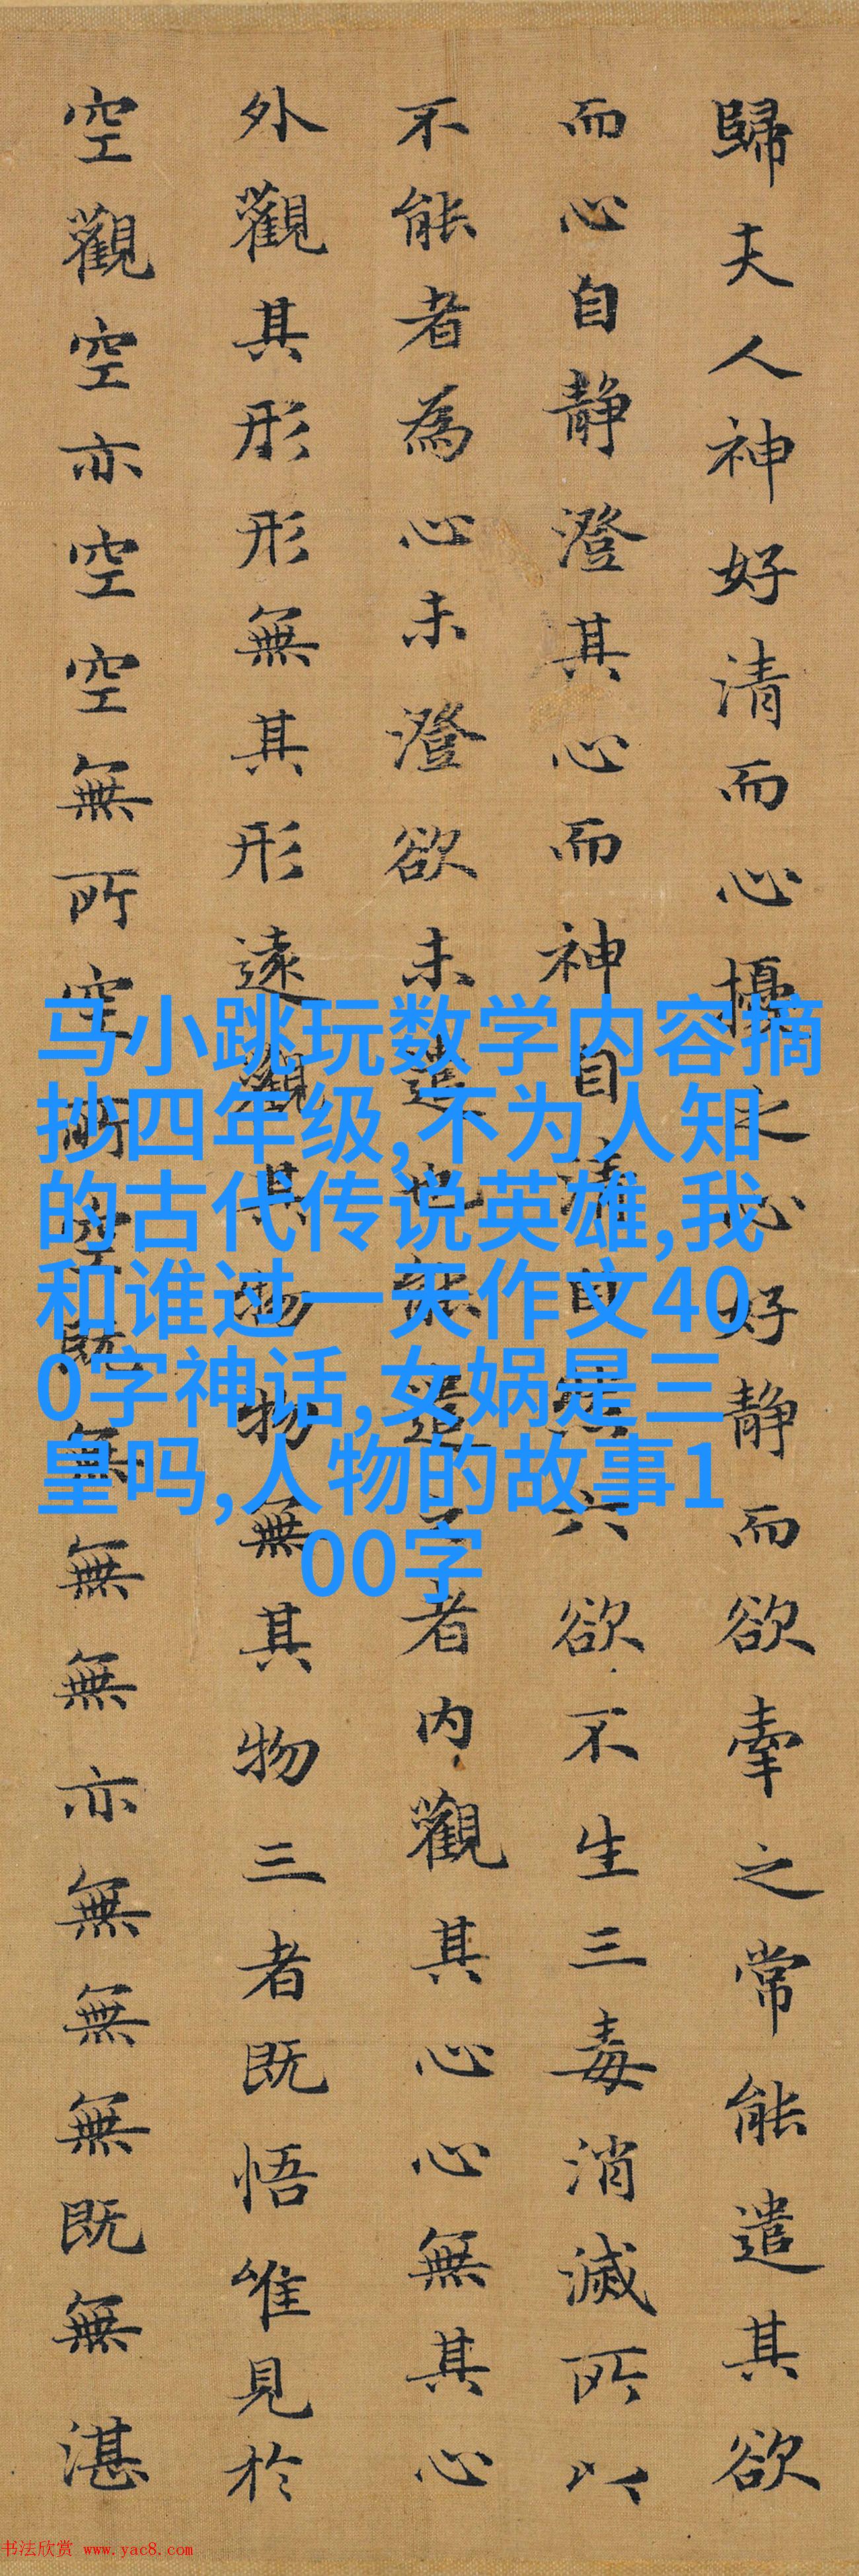 歸夫人神好清而心擾之心好静而欲牽之常能遣其欲
而心自静澄其心而神自清自然六欲不生三毒消滅所以
不能者為心未澄欲未遣也能遣之者内觀其心心無其心
外觀其形形無其形遠觀其物物無其物三者既悟唯見於
空觀空亦空空無所空所空既無無無亦無無無既無湛
马小跳玩数学内容摘
抄四年级,不为人知
的古代传说英雄,我
和谁过一天作文40
0字神话,女娲是三
皇吗,人物的故事1
00字
书法欣赏 www.yac8.com